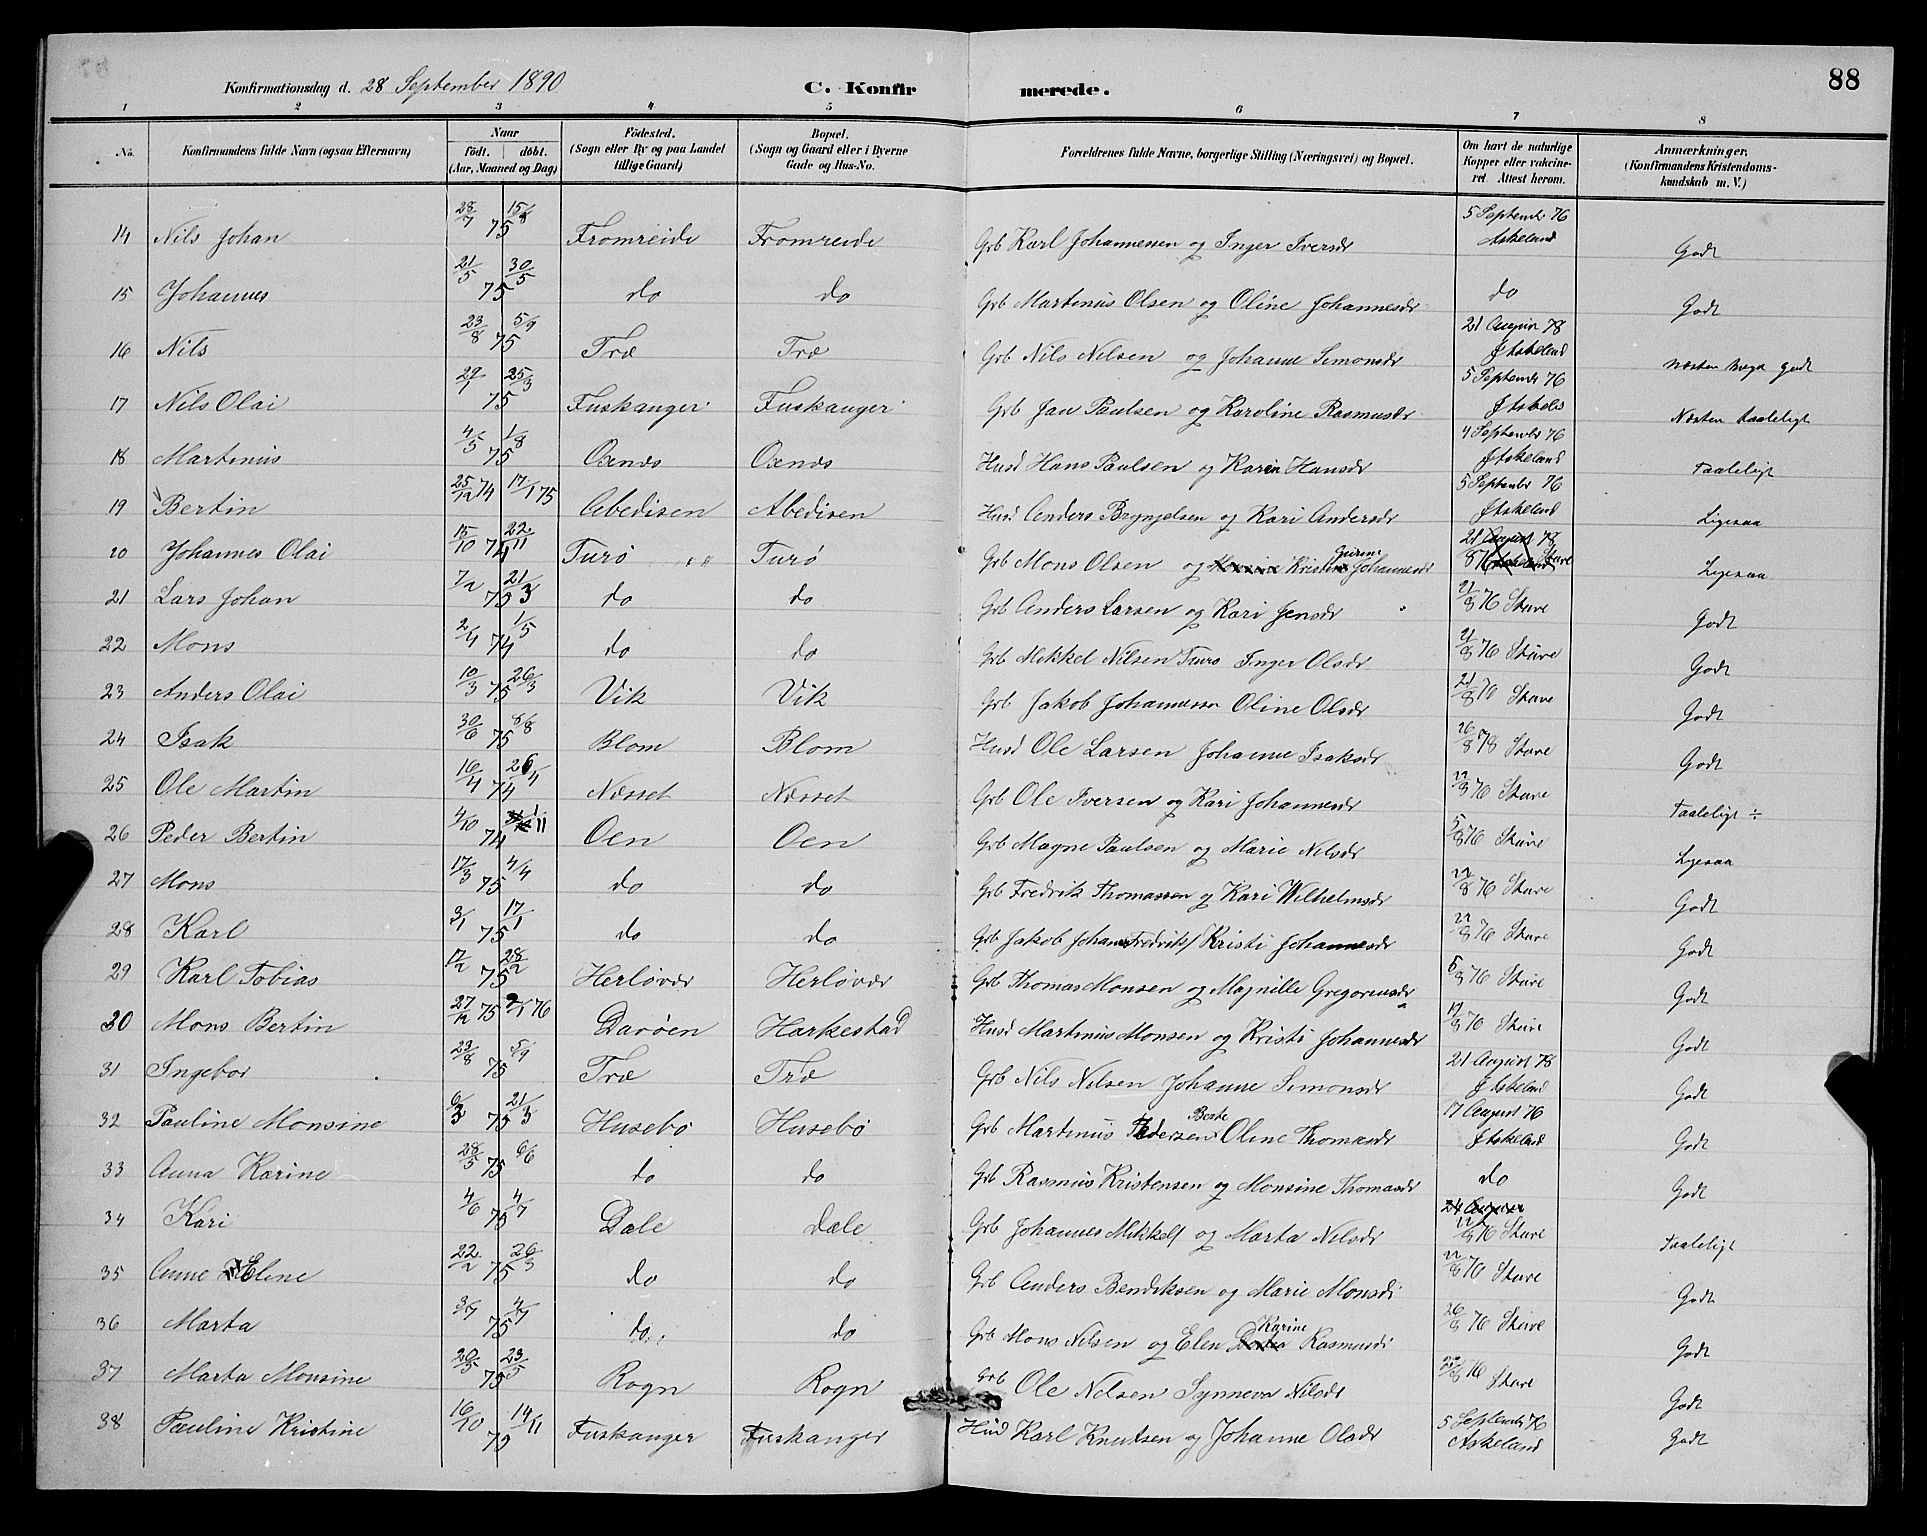 88
Konfirmationsdag d. 28 September 1890 C. Konfirmerede.
1 2 3 4 5 6 7 8
No. Konfirmandens fulde Navn (ogsaa Efternavn) Naar födt. döbt. (Aar, Maaned og Dag) Födested. (Sogn eller By og paa Landet tillige Gaard) Bopæl. (Sogn og Gaard eller i Byerne Gade og Hus-No. Forældrenes fulde Navne, borgerlige Stilling (Næringsvei) og Bopæl. Om havt de naturlige Kopper eller vakcineret Attest herom. Anmærkninger. (Konfirmandens Kristendomskundskab m. V.)
14 Nils Johan 28/7 75 15/8 Fromreide Fromreide Grb Karl Johannesen og Inger Iversdr 5 September 76 Askeland Godt
15 Johannes 21/5 75 30/5 do do Grb Martinus Olsen og Oline Johannesdr do Godt
16 Nils 23/8 75 5/9 Træ Træ Grb Nils Nilsen og Johanne Simonsdr 21 August 78 J Askeland Næsten meget godt
17 Nils Olai 29/1 75 25/3 Fuskanger Fuskanger Grb Jan Paulsen og Karoline Rasmusdr 5 September 76 Næsten taaleligt
18 Martinus 4/5 75 1/8 Oxnes Oxnes Husd Hans Paulsen og Karin Hansdr 4 September 76 J Askeland Taaleligt
19 Bertin 25/12 74 17/1 75 Abedisen Abedisen Husd Anders Brynjelsen og Kari Andersdr 5 September 76 J Askeland Ligesaa
20 Johannes Olai 15/10 74 22/11 Turö Turö Grb Mons Olsen og Kristine Johannesdr 21 August 78 Askeland 76 Stave Ligesaa
21 Lars Johan 7/2 75 21/3 do do Grb Anders Larsen og Kari Jensdr 21/8 76 Stave Godt
22 Mons 2/4 74 1/5 do do Grb Mikkel Nilsen Turö Inger Olsdr 21/8 76 Stave Godt
23 Anders Olai 10/3 75 26/3 Vik Vik Grb Jakob Johannessen Oline Olsdr 21/8 76 Stave Godt
24 Isak 30/6 75 8/8 Blom Blom Husd Ole Larsen Johanne Isaksdr 26/8 78 Stave Godt
25 Ole Martin 16/4 74 26/4 Næsset Næsset Grb Ole Iversen og Kari Johannesdr 22/8 76 Stave Taaleligt ÷
26 Peder Bertin 4/10 74 11 Oen Oen Grb Magne Paulsen og Marie Nilsdr 5/8 76 Stave Ligesaa
27 Mons 17/3 75 4/4 do do Grb Fredrik Thomassen og Kari Wilhelmsdr 22/8 76 Stave Godt
28 Karl 3/1 75 17/1 do do Grb Jakob Johan Fredriks/ Kristi Johannesdr 22/8 76 Stave Godt
29 Karl Tobias 17/2 75 28/2 Herlövær Herlövær Grb Thomas Monsen og Magnille Gregoriusdr 5/8 76 Stave Godt
30 Mons Bertin 27/12 75 2/1 76 Davöen Harkestad Husd Martinus Monsen og Kristi Johannesdr 17/8 76 Stave Godt
31 Ingebor 23/8 75 5/9 Træ Træ Grb Nils Nilsen Johanne Simonsdr 21 August 78 J Askeland Godt
32 Pauline Monsine 6/3 75 21/3 Husebö Husebö Grb Martinus Pedersen Berte Oline Thomasdr 17 August 76 J Askeland Godt
33 Anna Karine 28/5 75 6/6 do do Grb Rasmus Kristensen og Monsine Thomasdr do Godt
34 Kari 4/6 75 4/7 Dale Dale Grb Johannes Mikkels/ og Marta Nilsdr 22/8 76 Stave Taaleligt
35 Anne Eline 22/2 75 26/3 do do Grb Anders Bendiksen og Marie Monsdr 22/8 76 Stave Godt
36 Marta 3/7 75 4/7 do do Grb Mons Nilsen og Elen Karine Rasmusdr 26/8 76 Stave Godt
37 Marta Monsine 20/5 75 23/5 Rogn Rogn Grb Ole Nilsen Synneva Nilsdr 22/8 76 Stave Godt
38 Pauline Kristine 16/10 75 14/11 Fuskanger Fuskanger Husd Karl Knutsen og Johanne Olsdr 5 September 76 Askeland Godt